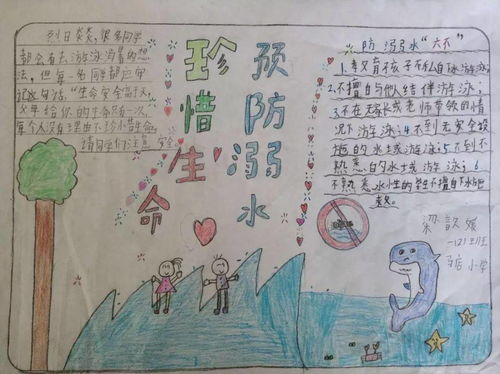 烈日炎炎,很多同学
都会有去游泳消暑的想
法,但每一名同学都应牢
记这句话,"生命安全高于天,
父母给你的生命只有一次,
每个人没有理由不珍惜生命。
请同学们注意 安全
珍惜生命
预防溺水
防溺水"六不"
1.
不私自下水游泳;
2.不擅自与他人结伴游泳;
3.不在无家长或老师带领的情
况下游泳;4.不到无安全设
施的水域游泳;5.不到不
熟悉的水域游泳;6.
不熟悉水性的学生不擅自下水施
救。
小学